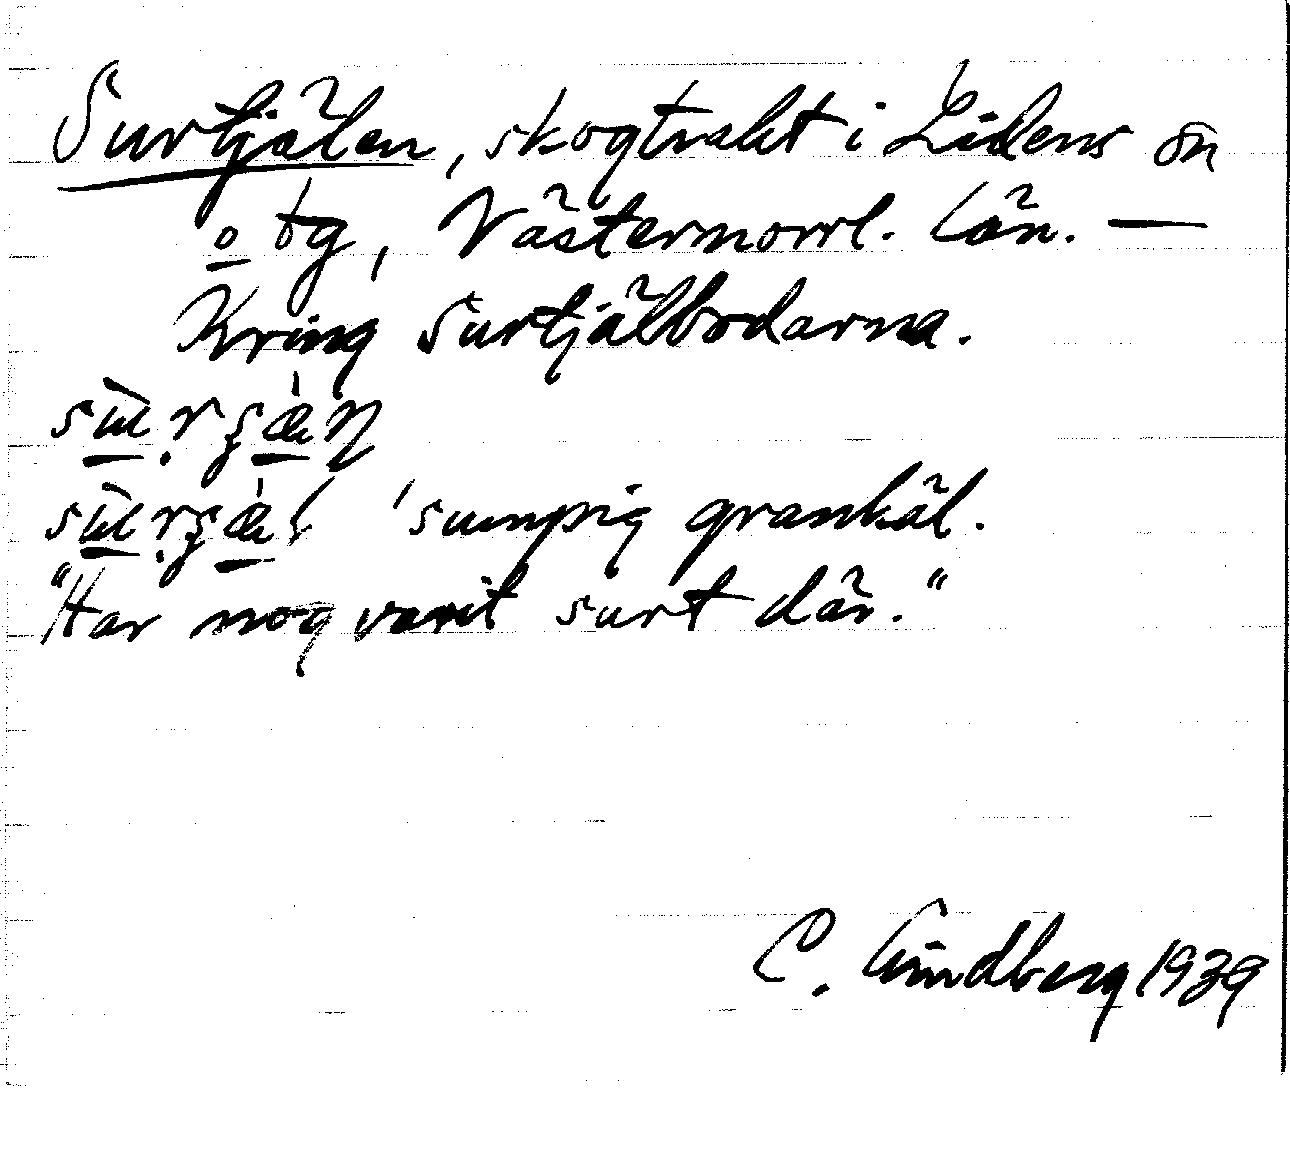 Surtjälen, skogtrakt i Lidens sn
o tg, Västermorrl. län. —
Kring Surtjälbodarna.
'sumpig grankäl.
"Har nog varit surt där."
C. Lindberg 1939